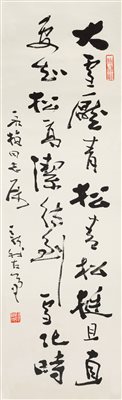 大雪壓青松青松挺且直
要知松高潔待到雪化時
同志屬